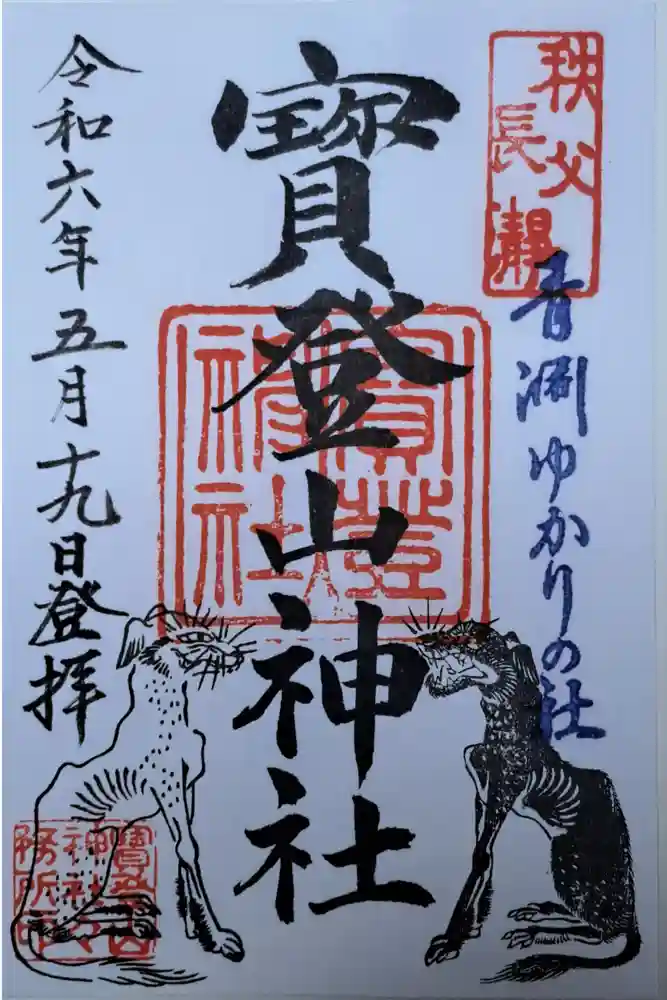 秩父
長瀞
青淵ゆかりの社
寳登山神社
寳登山神社
令和六年五月十九日登拝
寳登山
神社々
務所印